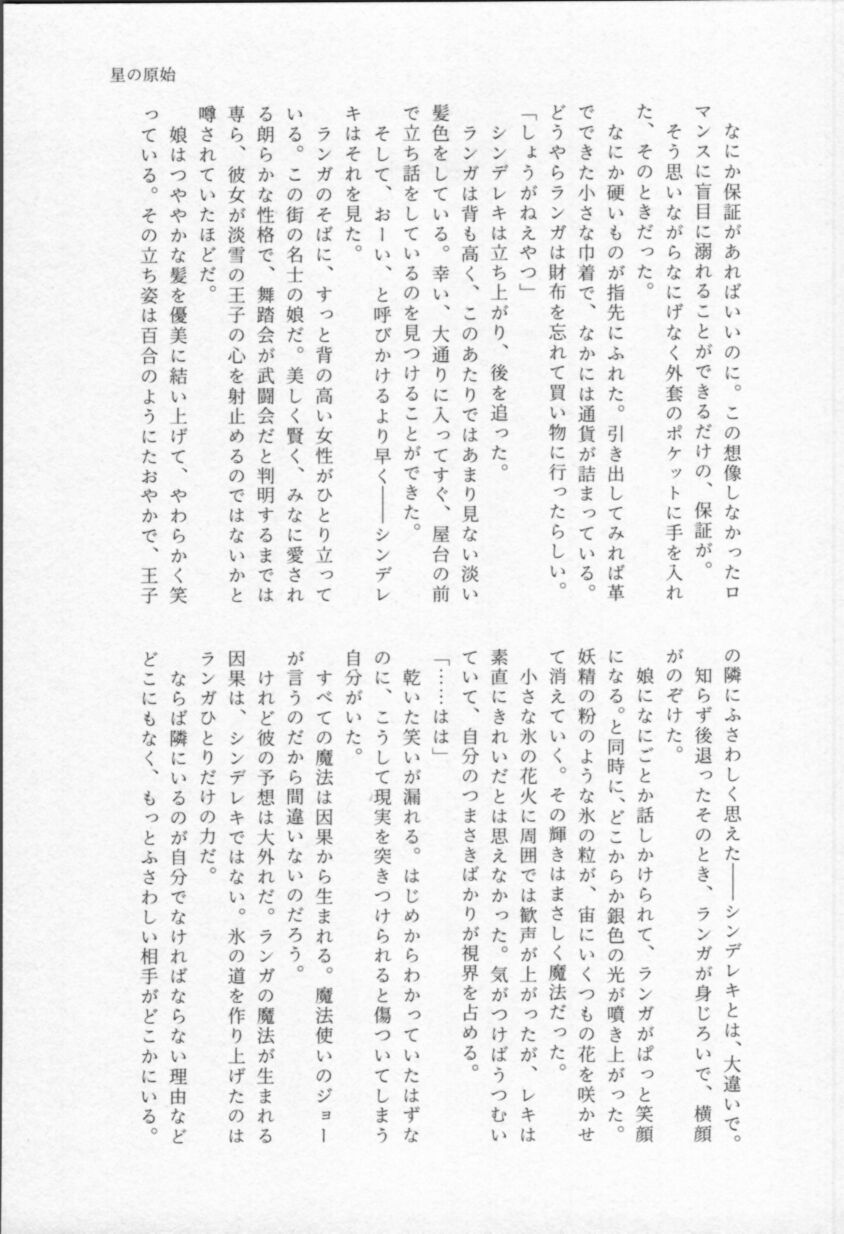 星の原始
なにか保証があればいいのに。この想像しなかったロ
マンスに盲目に溺れることができるだけの、保証が。
そう思いながらなにげなく外套のポケットに手を入れ
た、そのときだった。
なにか硬いものが指先にふれた。引き出してみれば革
でできた小さな巾着で、なかには通貨が詰まっている。
どうやらランガは財布を忘れて買い物に行ったらしい。
「しょうがねえやつ」
シンデレキは立ち上がり、後を追った。
ランガは背も高く、このあたりではあまり見ない淡い
髪色をしている。幸い、大通りに入ってすぐ、屋台の前
で立ち話をしているのを見つけることができた。
そして、おーい、と呼びかけるより早く――シンデレ
キはそれを見た。
ランガのそばに、すっと背の高い女性がひとり立って
いる。この街の名士の娘だ。美しく賢く、みなに愛され
る朗らかな性格で、舞踏会が武闘会だと判明するまでは
専ら、彼女が淡雪の王子の心を射止めるのではないかと
噂されていたほどだ。
娘はつややかな髪を優美に結い上げて、やわらかく笑
っている。その立ち姿は百合のようにたおやかで、王子
の隣にふさわしく思えた――シンデレキとは、大違いで。
知らず後退ったそのとき、ランガが身じろいで、横顔
がのぞけた。
娘になにごとか話しかけられて、ランガがぱっと笑顔
になる。と同時に、どこからか銀色の光が噴き上がった。
妖精の粉のような氷の粒が、宙にいくつもの花を咲かせ
て消えていく。その輝きはまさしく魔法だった。
小さな氷の花火に周囲では歓声が上がったが、レキは
素直にきれいだとは思えなかった。気がつけばうつむい
ていて、自分のつまさきばかりが視界を占める。
「……はは」
乾いた笑いが漏れる。はじめからわかっていたはずな
のに、こうして現実を突きつけられると傷ついてしまう
自分がいた。
すべての魔法は因果から生まれる。魔法使いのジョー
が言うのだから間違いないのだろう。
けれど彼の予想は大外れだ。ランガの魔法が生まれる
因果は、シンデレキではない。氷の道を作り上げたのは
ランガひとりだけの力だ。
ならば隣にいるのが自分でなければならない理由など
どこにもなく、もっとふさわしい相手がどこかにいる。